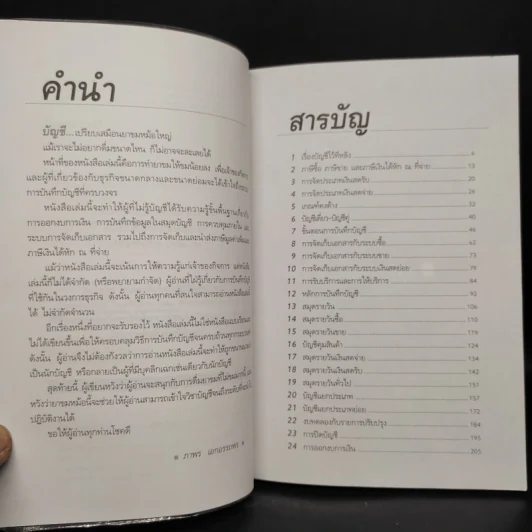 คำนำ
บัญชี...เปรียบเสมือนยาขมหม้อใหญ่
แม้เราจะไม่อยากดื่มขนาดไหน ก็ไม่อาจจะละเลยได้
หน้าที่ของหนังสือเล่มนี้คือการทำยาขมให้ขมน้อยลง เพื่อเจ้าของกิจการ
และผู้ที่เกี่ยวข้องกับธุรกิจขนาดกลางและขนาดย่อมจะได้เข้าใจถึง
การบันทึกบัญชีที่ครบวงจร
หนังสือเล่มนี้จะทำให้ผู้ที่ไม่รู้บัญชีได้รับความรู้ขั้นพื้นฐานเกี่ยวกับ
การออกงบการเงิน การบันทึกข้อมูลในสมุดบัญชี การควบคุมภายใน และ
ระบบการจัดเก็บเอกสาร รวมไปถึงการจัดเก็บและนำส่งภาษีมูลค่าเพิ่มและ
ภาษีเงินได้หัก ณ ที่จ่าย
แม้ว่าหนังสือเล่มนี้จะเน้นการให้ความรู้แก่เจ้าของกิจการ แต่หนังสือ
เล่มนี้ก็ไม่ได้จำกัด (หรือพยายามกำจัด) ผู้อ่านที่ไม่รู้เกี่ยวกับการบันทึกบัญชี
ที่ใช้กันในวงการธุรกิจ ดังนั้น ผู้อ่านทุกคนที่สนใจสามารถอ่านหนังสือเล่มนี้
ได้ ไม่จำกัดจำนวน
อีกเรื่องหนึ่งที่อยากจะรับรองไว้ หนังสือเล่มนี้ไม่ใช่หนังสือแบบเรียน
ไม่ได้เขียนขึ้นเพื่อให้ครอบคลุมวิธีการบันทึกบัญชีจนครบถ้วนทุกกระบวน
ดังนั้น ผู้อ่านจึงไม่ต้องกังวลว่าการอ่านหนังสือเล่มนี้จะทำให้ถูก
เป็นนักบัญชี หรือกลายเป็นผู้ที่มีบุคลิกแฉกเช่นเดียวกับนักบัญชี
สุดท้ายนี้ ผู้เขียนหวังว่าผู้อ่านจะสนุกกับการดื่มยาขมที่ไม่ขมถนนี้ และ
หวังว่ายาขมหม้อนี้จะช่วยให้ผู้อ่านสามารถเข้าใจวิชาบัญชีจนถึงระดับที่
ปฏิบัติงานได้
ขอให้ผู้อ่านทุกท่านโชคดี
* ภาพร เอกอรรถพร *
สารบัญ
1 เรื่องบัญชีไว้ทีหลัง 4
2 ภาษีซื้อ ภาษีขาย และภาษีเงินได้หัก ณ ที่จ่าย 15
3 การจัดประเภทเงินสดรับ 20
4 การจัดประเภทเงินสดจ่าย 26
5 เกณฑ์คงค้าง 32
6 บัญชีเดี่ยว-บัญชีคู่ 40
7 ขั้นตอนการบันทึกบัญชี 49
8 การจัดเก็บเอกสารกับระบบซื้อ 62
9 การจัดเก็บเอกสารกับระบบขาย 73
10 การจัดเก็บเอกสารกับระบบเงินสดย่อย 79
11 การรับบริการและการให้บริการ 84
12 หลักการบันทึกบัญชี 93
13 สมุดรายวัน 106
14 สมุดรายวันซื้อ 110
15 สมุดรายวันขาย 117
16 บัญชีคุมสินค้า 124
17 สมุดรายวันเงินสดจ่าย 134
18 สมุดรายวันเงินสดรับ 142
19 สมุดรายวันทั่วไป 151
20 บัญชีแยกประเภท 157
21 บัญชีแยกประเภทย่อย 172
22 งบทดลองกับรายการปรับปรุง 184
23 การปิดบัญชี 195
24 การออกงบการเงิน 205